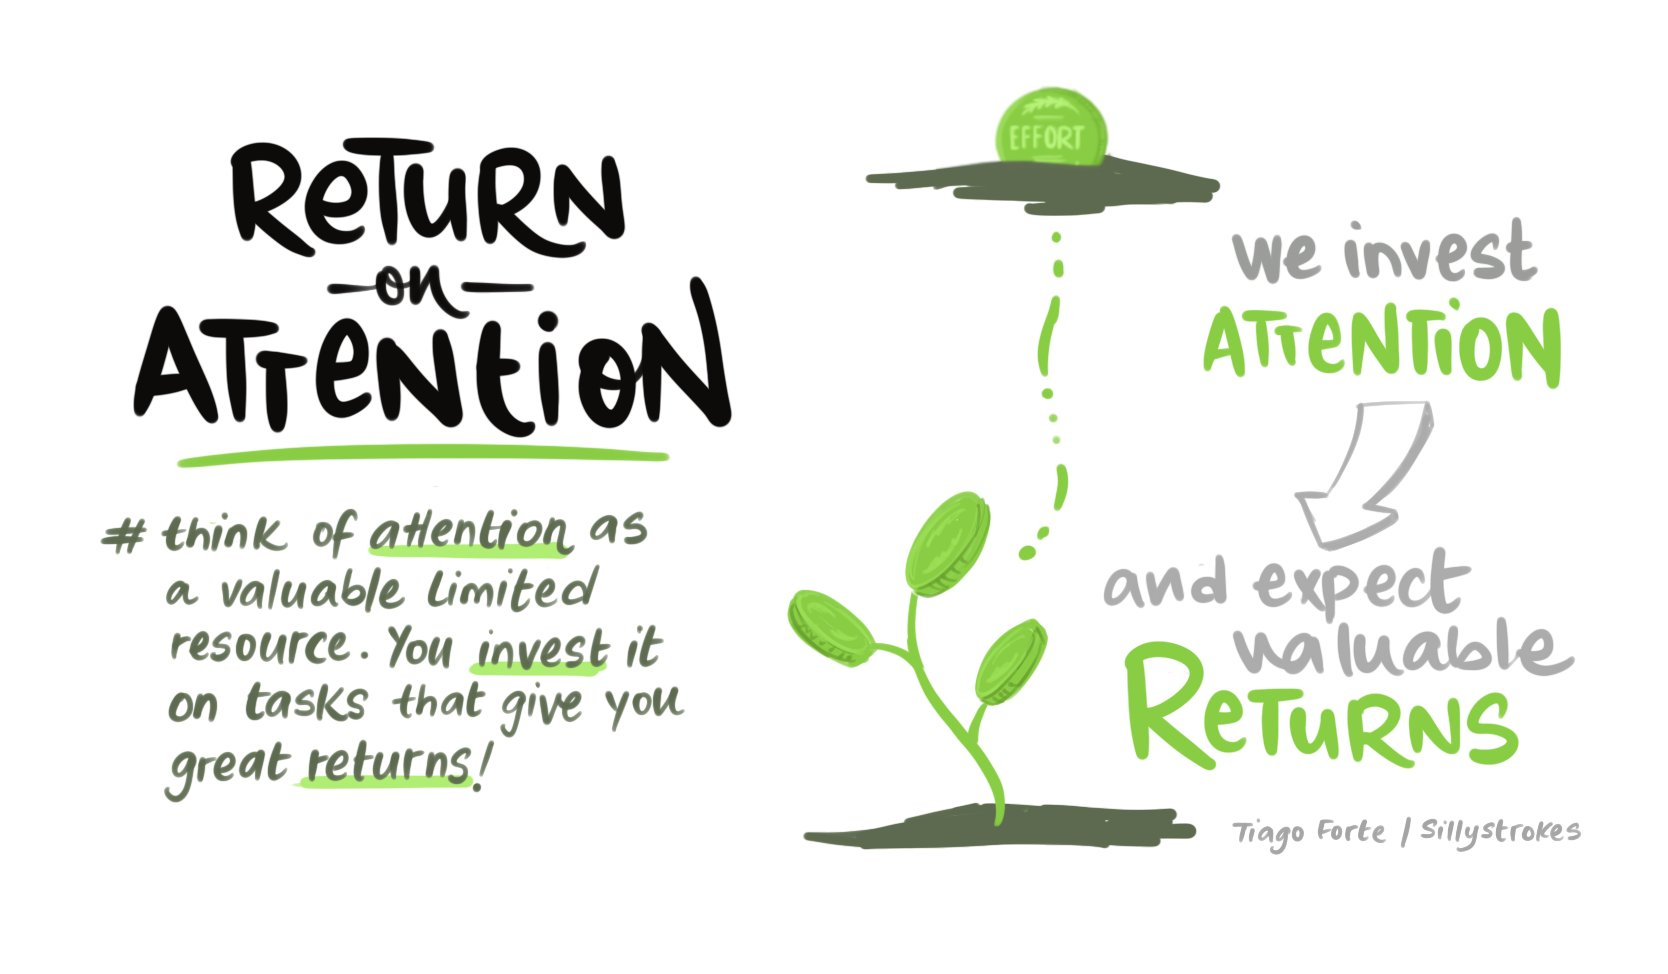 Return
on
Attention
# think of attention as
a valuable limited
resource. You invest it
on tasks that give you
great returns!
EFFORT
we invest
ATTENTION
and expect
valuable
RETURNS
Tiago Forte / Sillystrokes